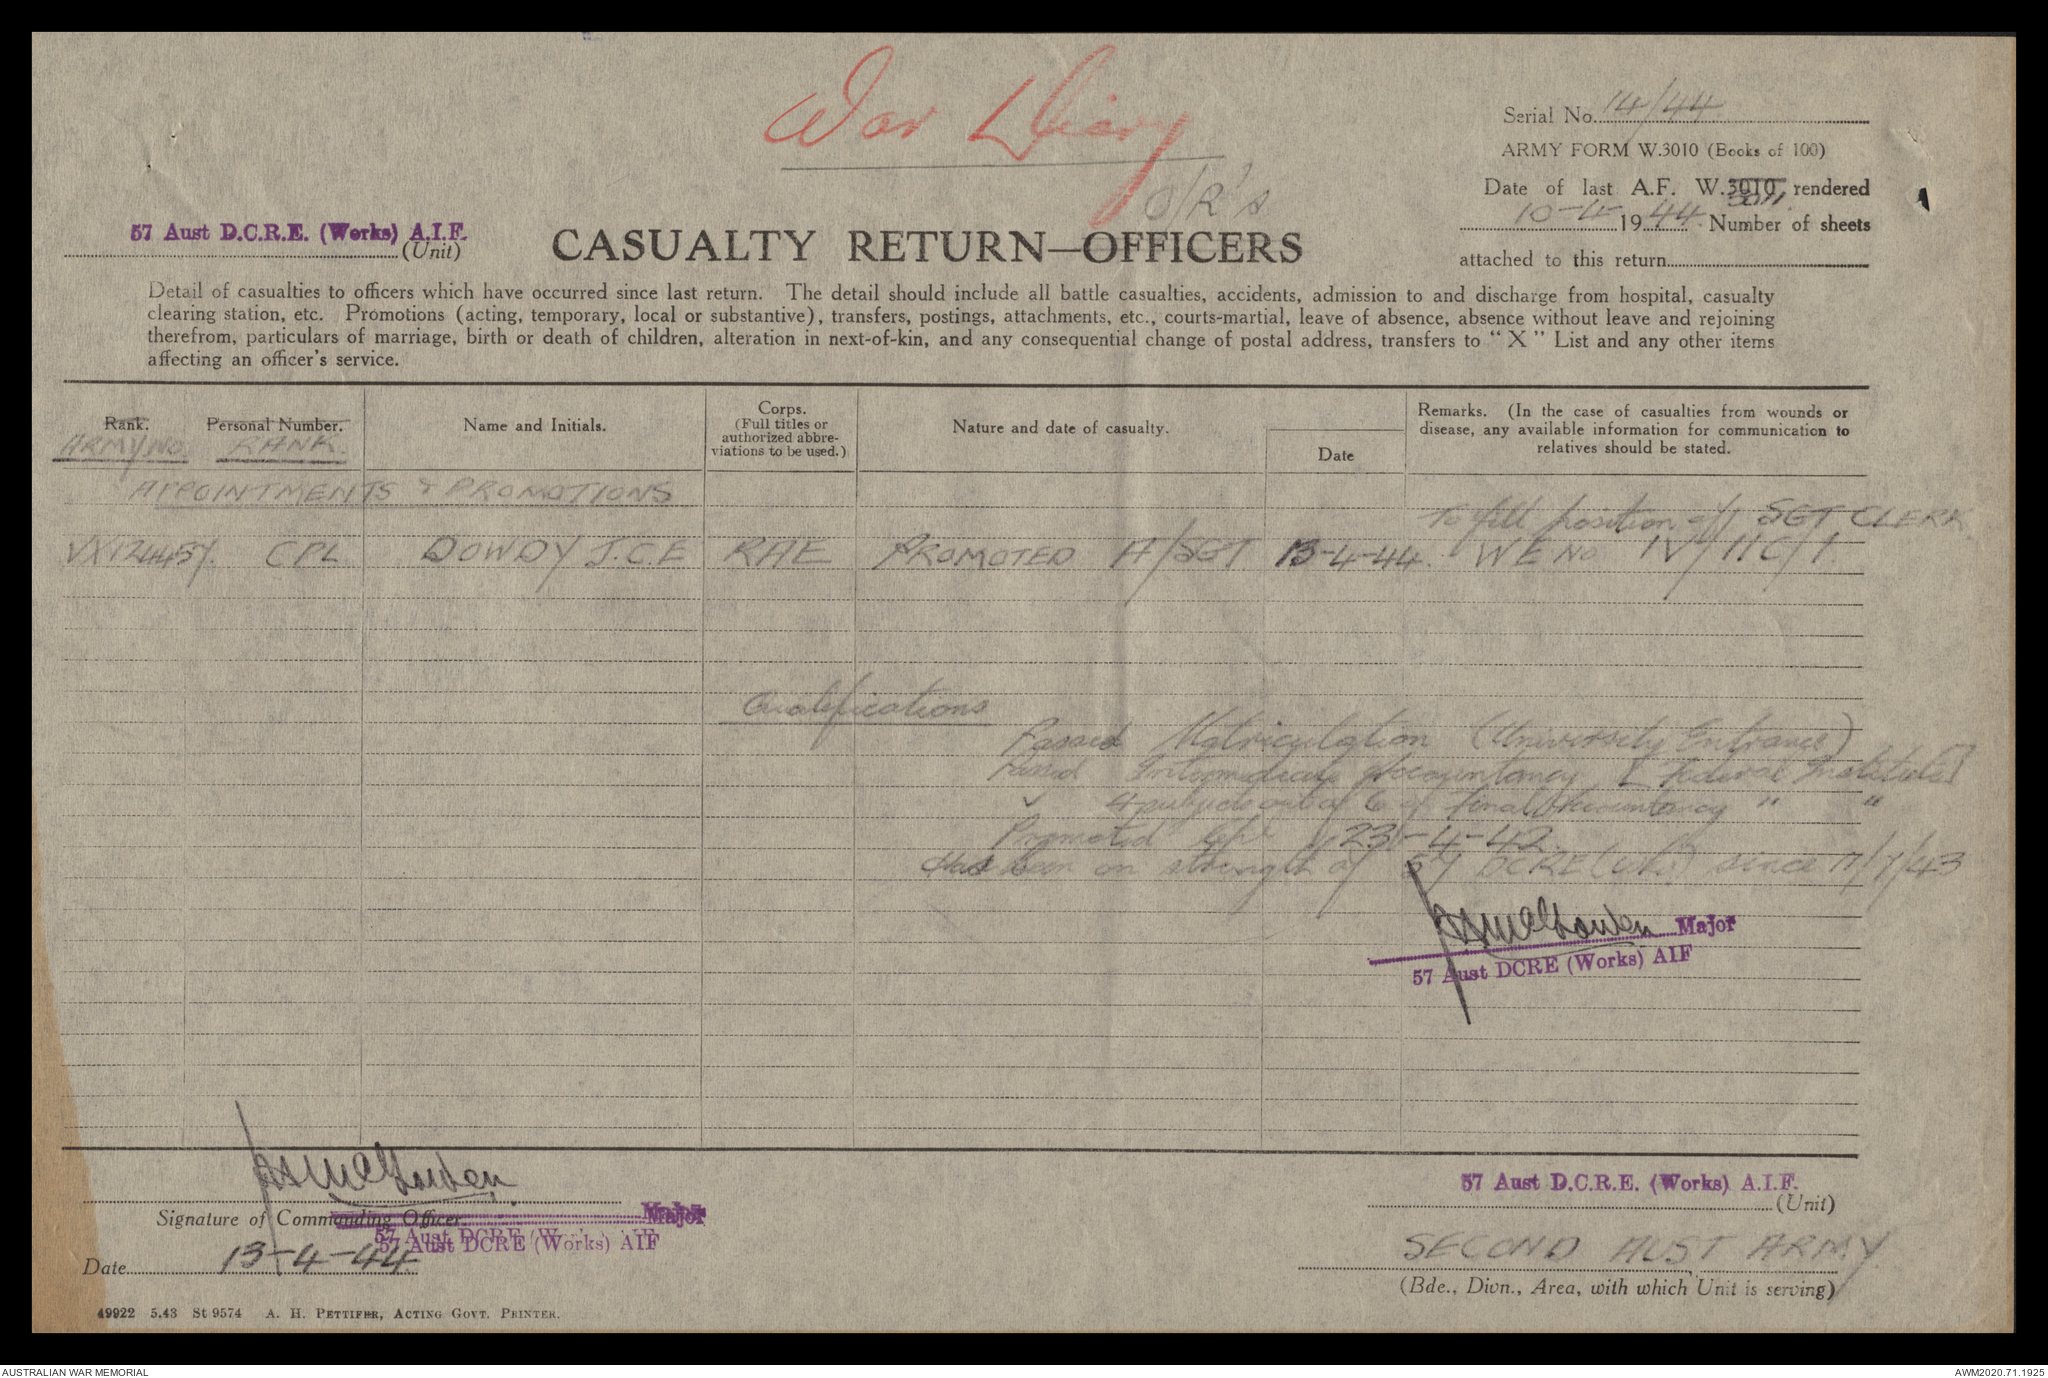 War Diary
Serial No. 14/44
ARMY FORM W.3010 (Books of 100)
Date of last A.F. W.3010 rendered
3011
10-4-1944. Number of sheets
attached to this return
57 Aust D.C.R.E. (Works) A.I.F.
(Unit)
O/R's
CASUALTY RETURN—OFFICERS
Detail of casualties to officers which have occurred since last return. The detail should include all battle casualties, accidents, admission to and discharge from hospital, casualty
clearing station, etc. Promotions (acting, temporary, local or substantive), transfers, postings, attachments, etc., courts-martial, leave of absence, absence without leave and rejoining
therefrom, particulars of marriage, birth or death of children, alteration in next-of-kin, and any consequential change of postal address, transfers to "X" List and any other items
affecting an officer's service.
Rank. Personal Number. Name and Initials. Corps. (Full titles or authorized abbreviations to be used.) Nature and date of casualty. Date Remarks. (In the case of casualties from wounds or
disease, any available information for communication to
relatives should be stated.
ARMY NO. RANK.
APPOINTMENTS & PROMOTIONS
To fill position of 1 SGT CLERK
CPL DOWDY J.C.E RAE PROMOTED A/SGT 13-4-44. WE NO IV/11C/1.
Qualifications
Passed Matriculation (University Entrance)
Passed Intermediate Accountancy [Federal Institute]
" 4 subjects out of 6 of Final Accountancy " "
Promoted Cpl 23-4-42.
Has been on strength of 57 DCRE (Wks) since
Major
57 Aust DCRE (Works) AIF
Signature of Commanding Officer.
Major
57 Aust DCRE (Works) AIF
Date 13-4-44.
57 Aust D.C.R.E. (Works) A.I.F.
(Unit)
SECOND AUST ARMY
(Bde., Divn., Area, with which Unit is serving)
49922 5.43 St 9574 A. H. PETTIFER, ACTING GOVT. PRINTER.
AUSTRALIAN WAR MEMORIAL
AWM2020.71.1925